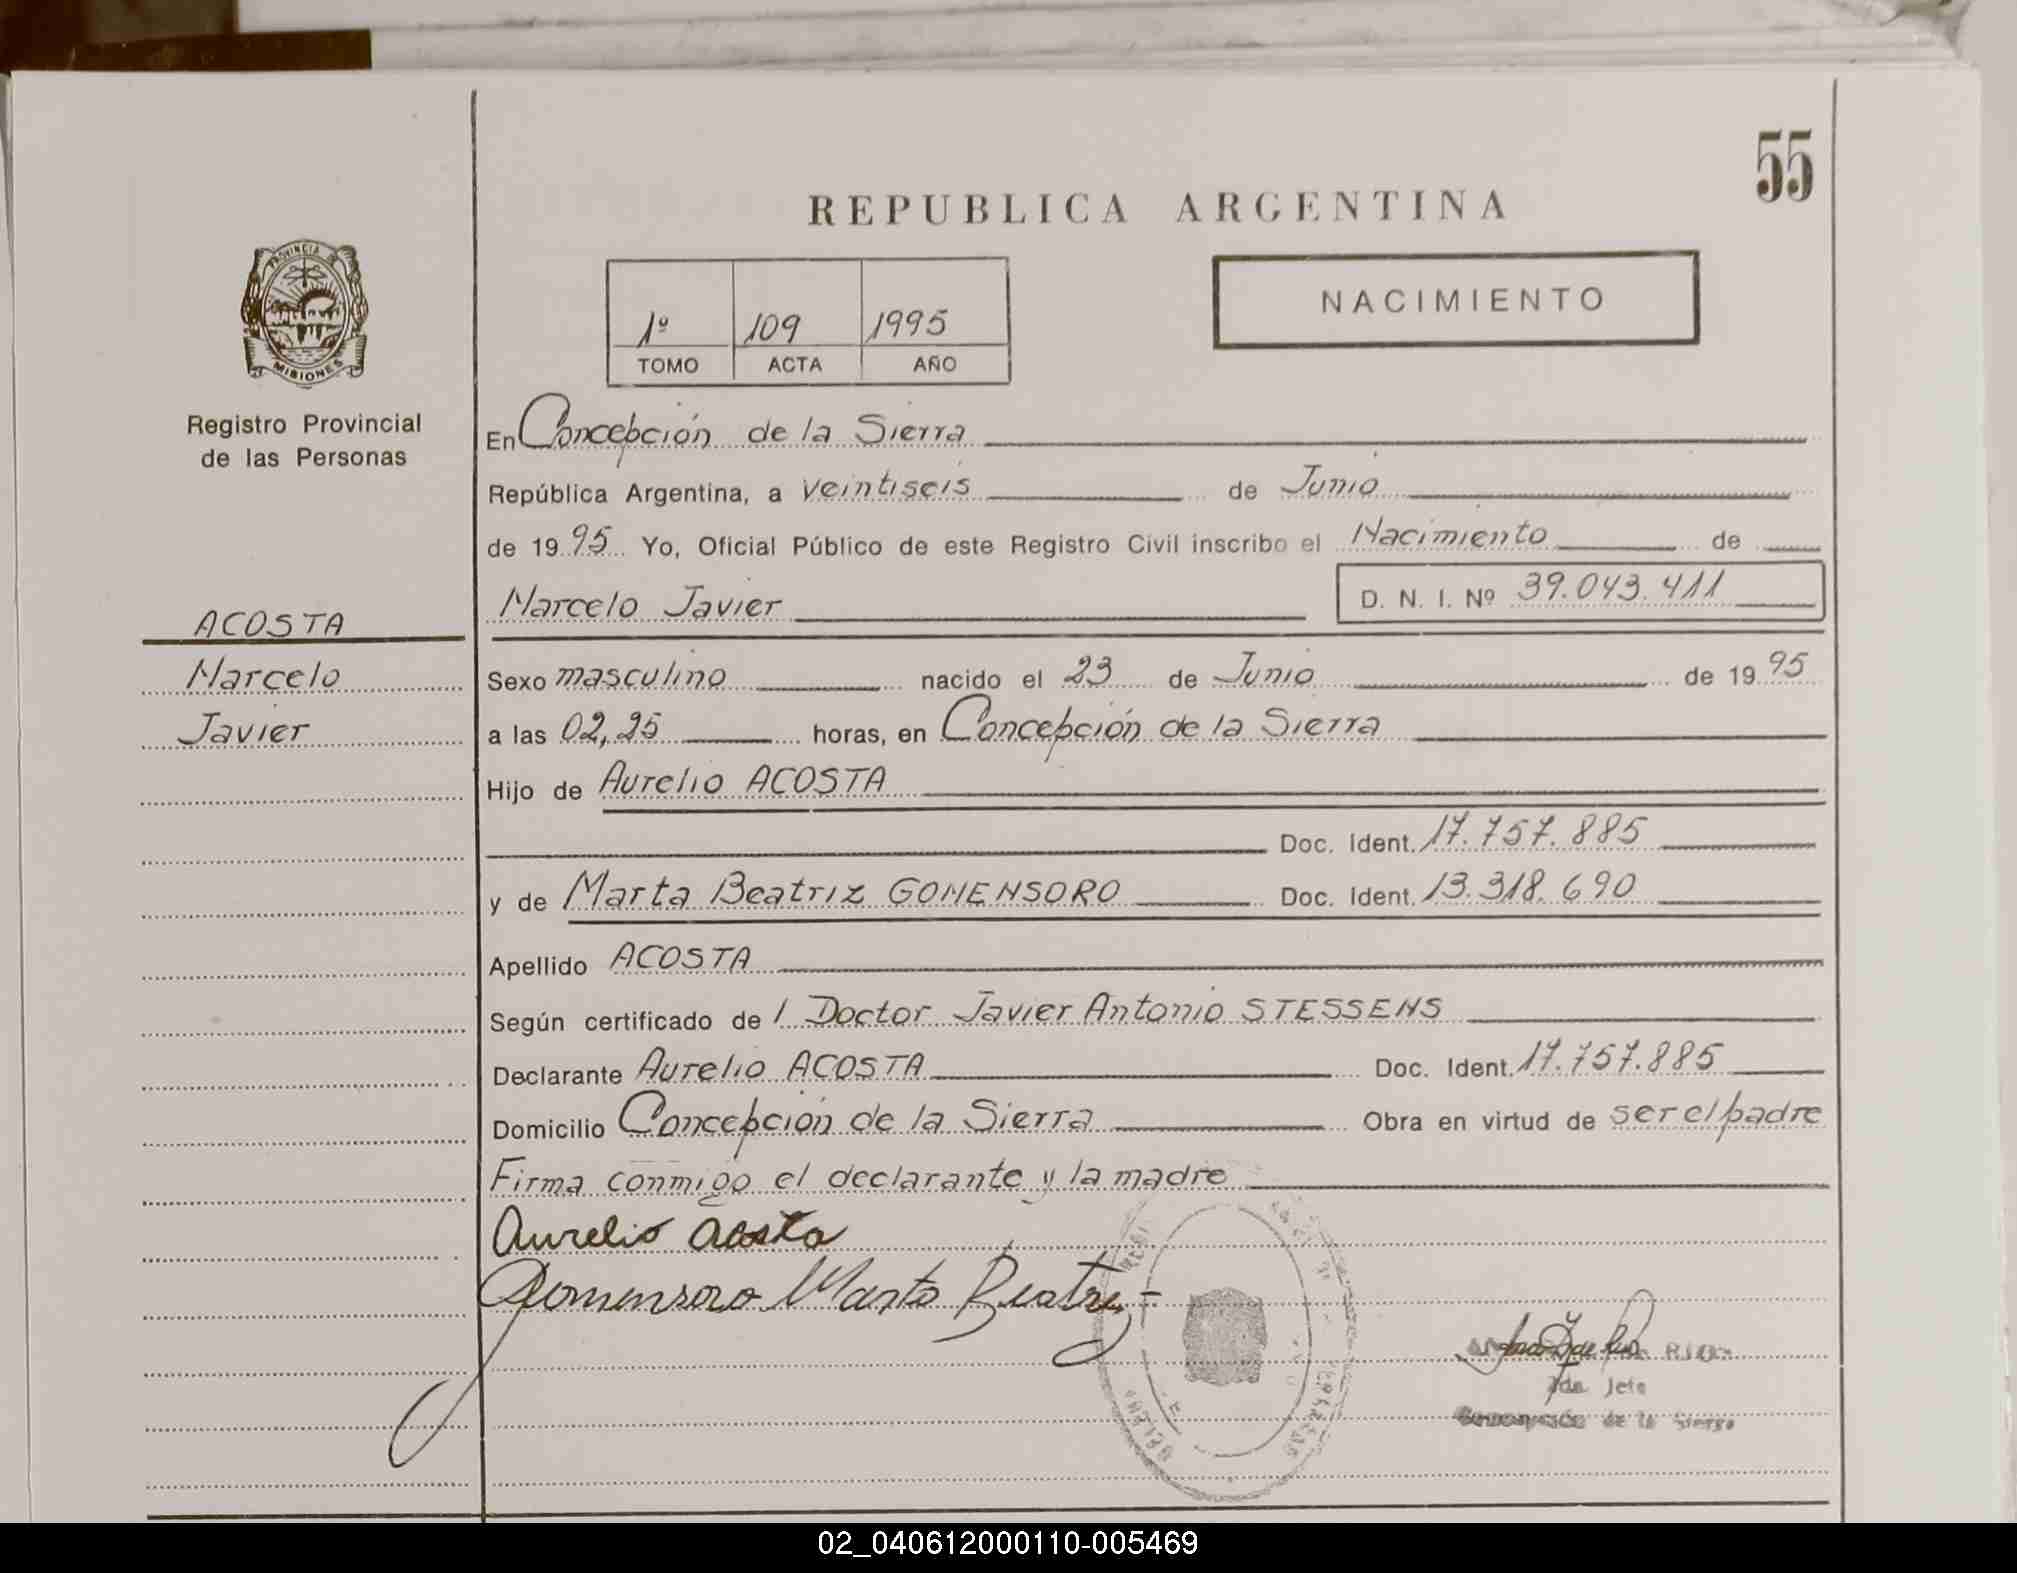 55
REPUBLICA ARGENTINA
PROVINCIA DE
MISIONES
1º 109 1995
TOMO ACTA AÑO
NACIMIENTO
Registro Provincial
de las Personas
En Concepción de la Sierra
República Argentina, a veintiseis de Junio
de 1995 Yo, Oficial Público de este Registro Civil inscribo el Nacimiento de
Marcelo Javier D. N. I. Nº 39.043.411
ACOSTA
Marcelo
Javier
Sexo masculino nacido el 23 de Junio de 1995
a las 02,25 horas, en Concepción de la Sierra
Hijo de Aurelio ACOSTA
Doc. Ident. 17.757.885
y de Marta Beatriz GOMENSORO Doc. Ident. 13.318.690
Apellido ACOSTA
Según certificado de l Doctor Javier Antonio STESSENS
Declarante Aurelio ACOSTA Doc. Ident. 17.757.885
Domicilio Concepción de la Sierra Obra en virtud de ser el padre
Firma conmigo el declarante y la madre
Aurelio Acosta
Gomensoro Marta Beatriz
Jefe
Concepción de la Sierra
02_040612000110-005469